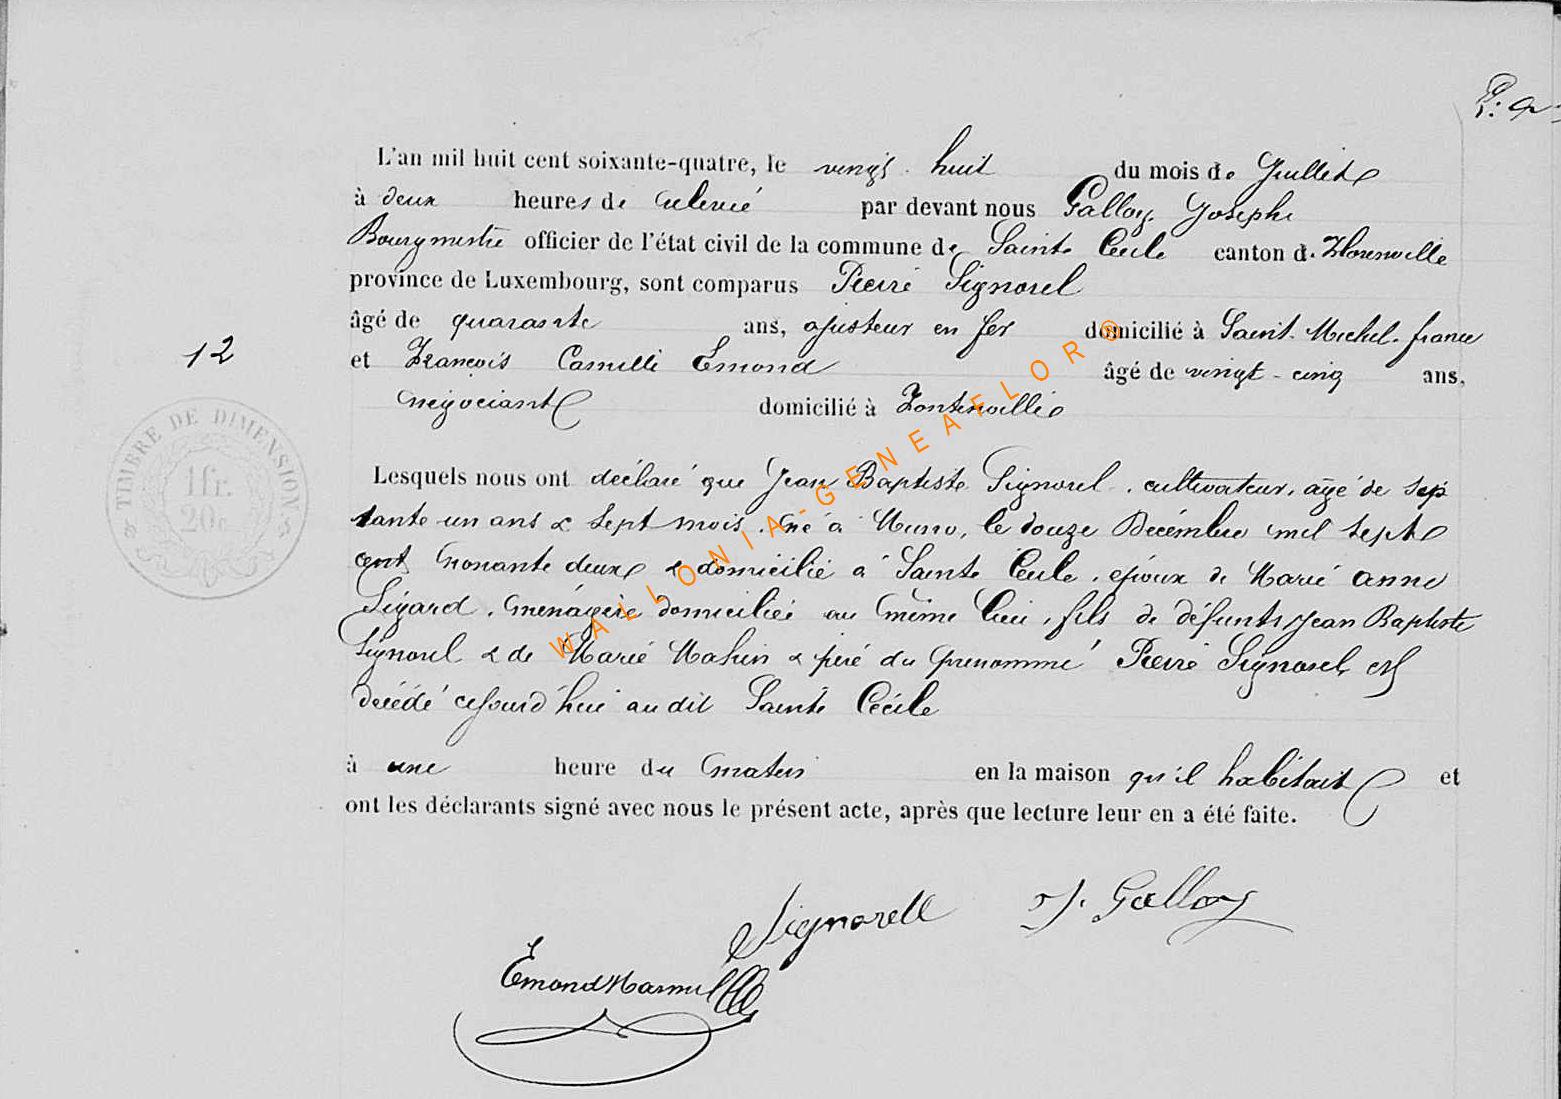 L'an mil huit cent soixante-quatre, le vingt huit du mois de Juillet
à deux heures de relevé par devant nous Galloy Joseph
Bourgmestre officier de l'état civil de la commune de Sainte Cecile canton d. Florenville
province de Luxembourg, sont comparus Pierre Signorel
âgé de quarante ans, ajusteur en fer domicilié à Saint-Michel-france
12
et François Camille Emond âgé de vingt-cinq ans,
négociant domicilié à Fontenoille
TIMBRE DE DIMENSION
1 fr. 20 c
Lesquels nous ont déclaré que Jean Baptiste Signorel, cultivateur, agé de sep
tante un ans & sept mois, né à Muno, le douze Decémbre mil sept
cent nonante deux & domicilié à Sainte Cecile, époux de Marie anne
Sigard, ménagère domiciliée au même lieu, fils de défunts Jean Baptiste
Signorel & de Marie Mahin & père du prenommé Pierre Signorel, est
décédé cejourd'hui audit Sainte Cécile
à une heure du matin en la maison qu'il habitait et
ont les déclarants signé avec nous le présent acte, après que lecture leur en a été faite.
Signorell J. Galloy
Emond
WALLONIA-GENEAFLOR®